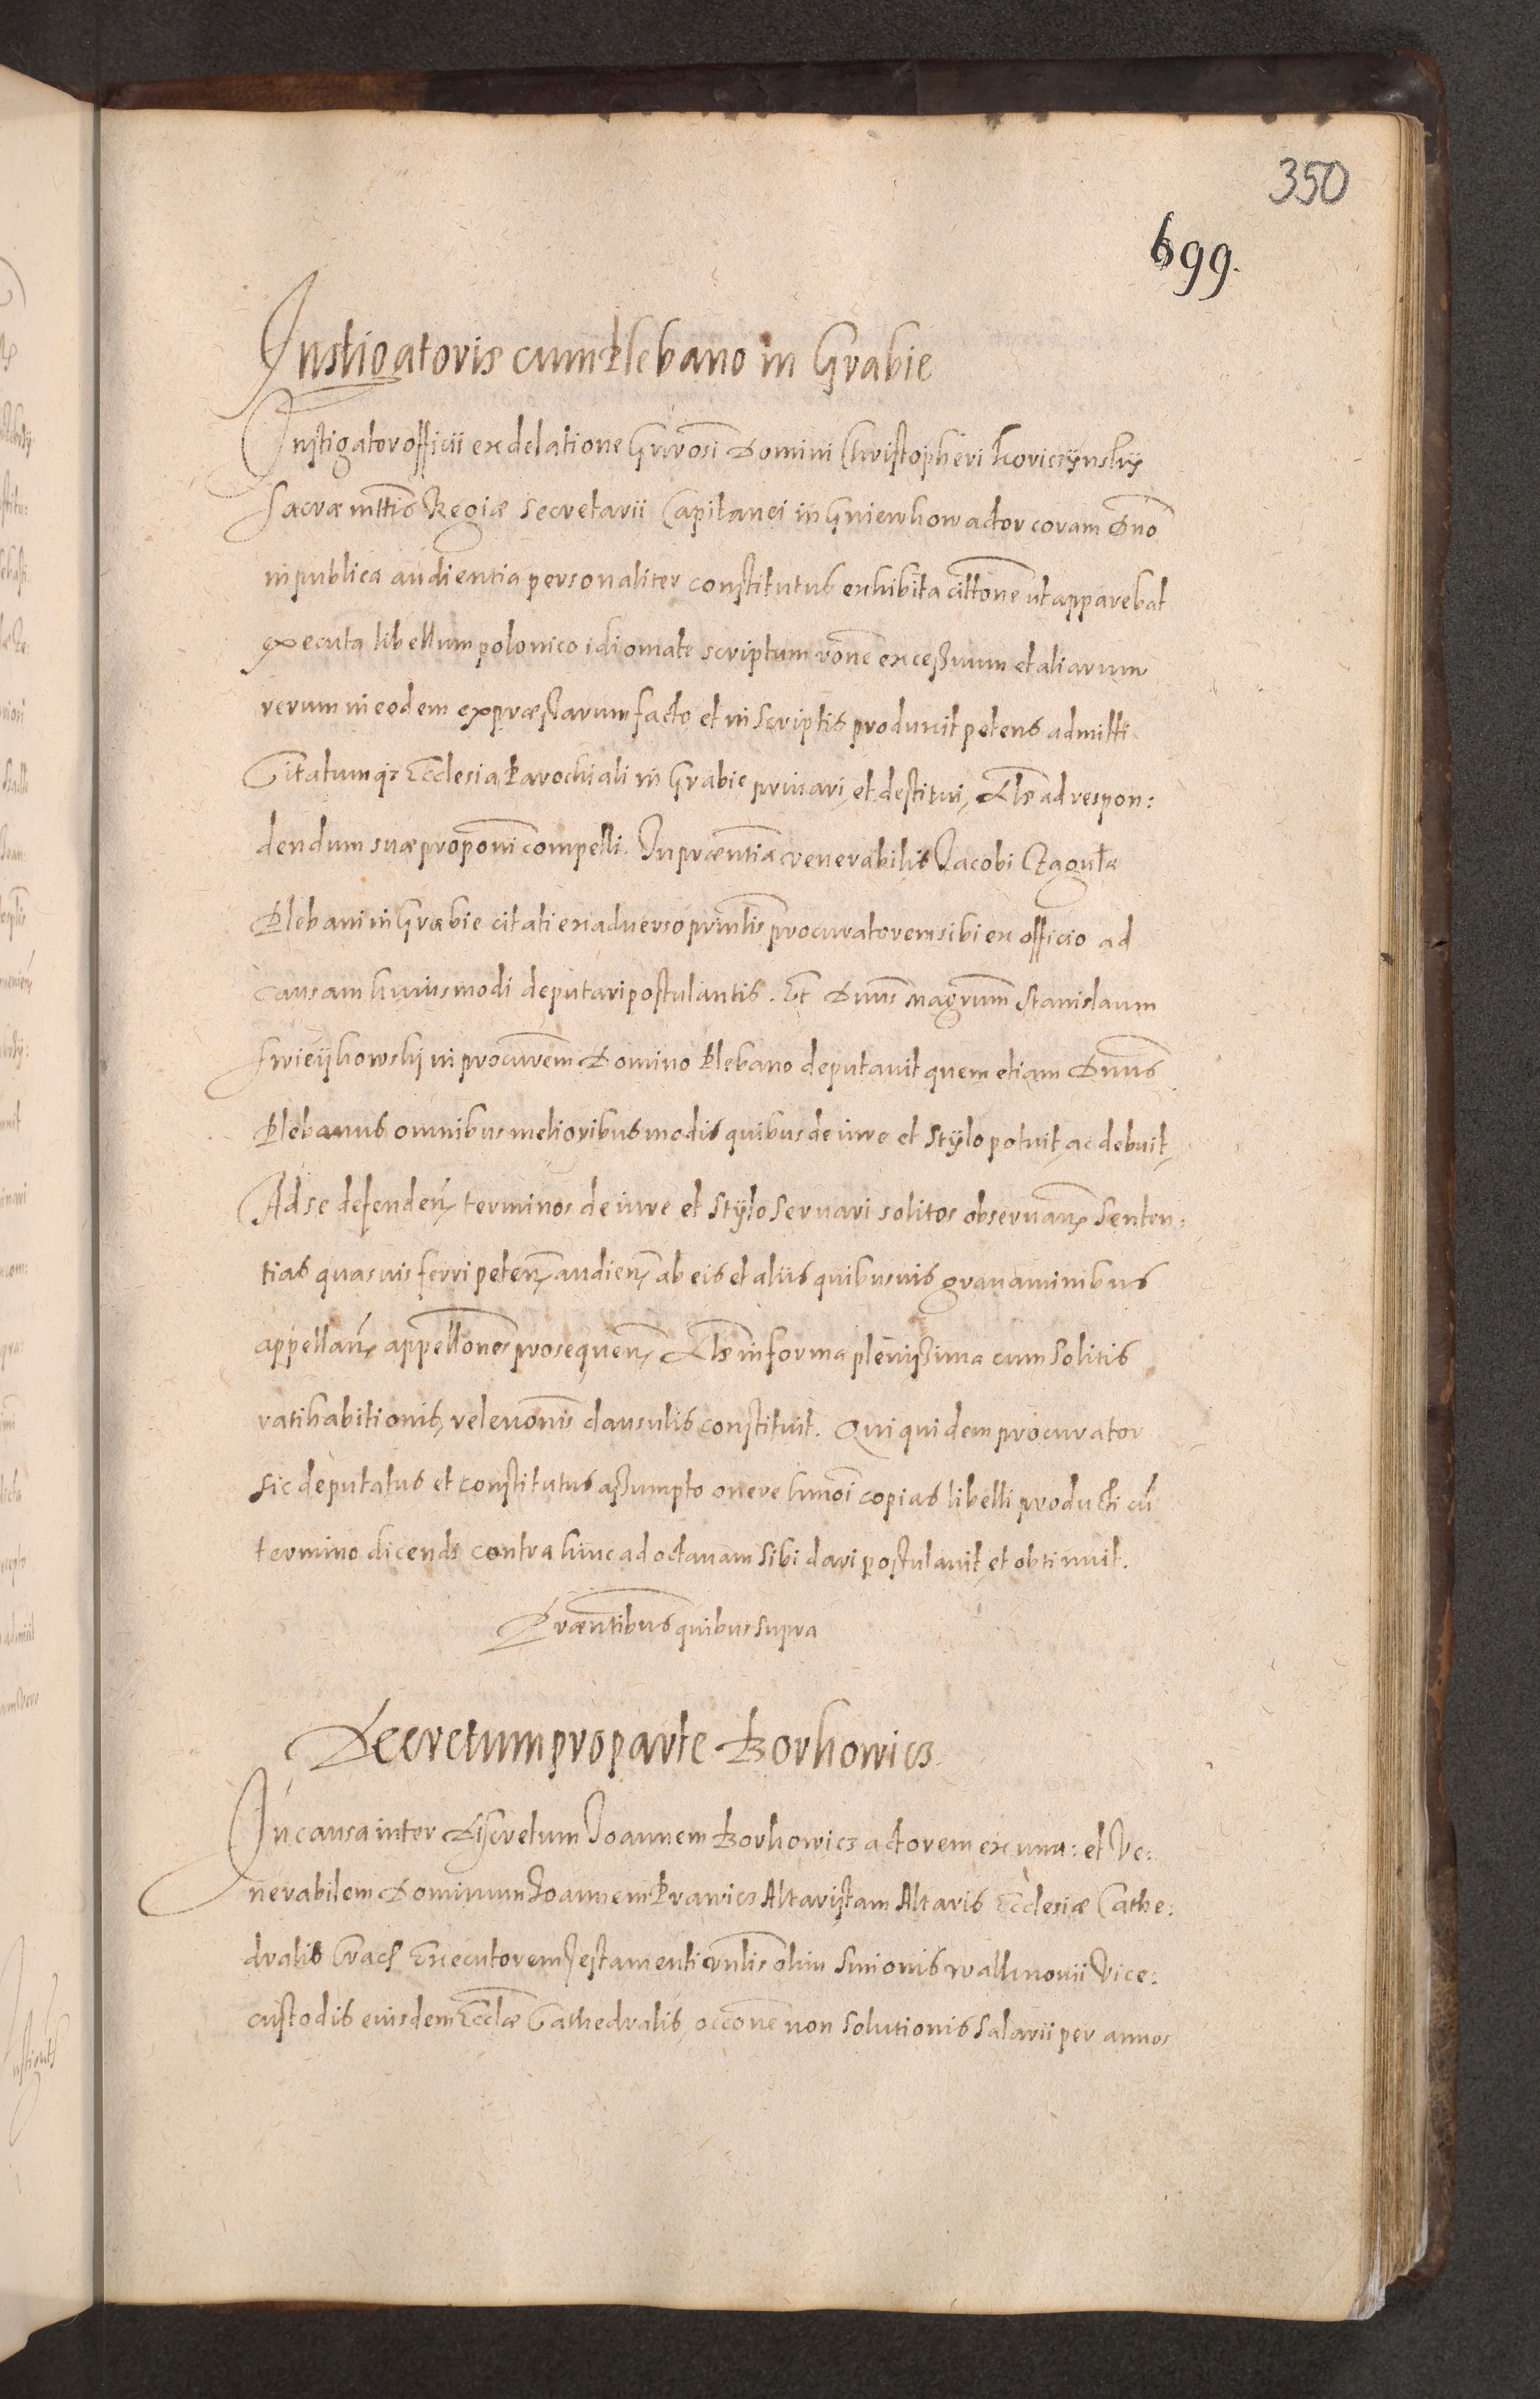 350
699.
Instigatoris cum Plebano in Grabie
Instigator officii ex delatione Gnrosi Domini Christopheri Koriczÿnskÿ
Sacræ mttis Regiæ Secretarii Capitanei in Gniewkow actor coram Dno
in publica audientia personaliter constitutus exhibita cittone ut apparebat
executa libellum polonico idiomate scriptum rone excessuum et aliarum
rerum in eodem expræssarum facto et in scriptis produxit petens admitti
Citatumq3 Ecclesia Parochiali in Grabie priuari, et destitui, Als ad respon:
dendum suæ proponi compelli. In præntia venerabilis Jacobi
Plebani in Grabie citati ex aduerso prntis procuratorem sibi ex officio ad
causam huiusmodi deputari postulantis. Et Dnus magrum Stanislaum
in procurem Domino Plebano deputauit quem etiam Dnus
Plebanus omnibus melioribus modis quibus de iure et stÿlo potuit, ac debuit,
Ad se defenden terminos de iure et stÿlo seruari solitos obseruan senten:
tias quasuis ferri peten audien ab eis et aliis quibusuis grauaminibus
appellan appellones prosequen Als in forma plenissima cum solitis
ratihabitionis, releuonis clausulis constituit. Qui quidem procurator
sic deputatus et constitutus assumpto onere hmoi copias libelli producti cu
termino dicendi contra hinc ad octauam sibi dari postulauit, et obtinuit.
Præntibus quibus supra
Decretum pro parte Borkowicz
In causa inter Discretum Joannem Borkowicz actorem ex una: et Ve:
nerabilem Dominum Joannem Prawicz Altaristam Altaris Ecclesiæ Cathe:
dralis Crac Executorem Testamenti vnlis olim Simonis Vice:
custodis eiusdem Ecclæ Cathedralis, occone non solutionis salarii per annos